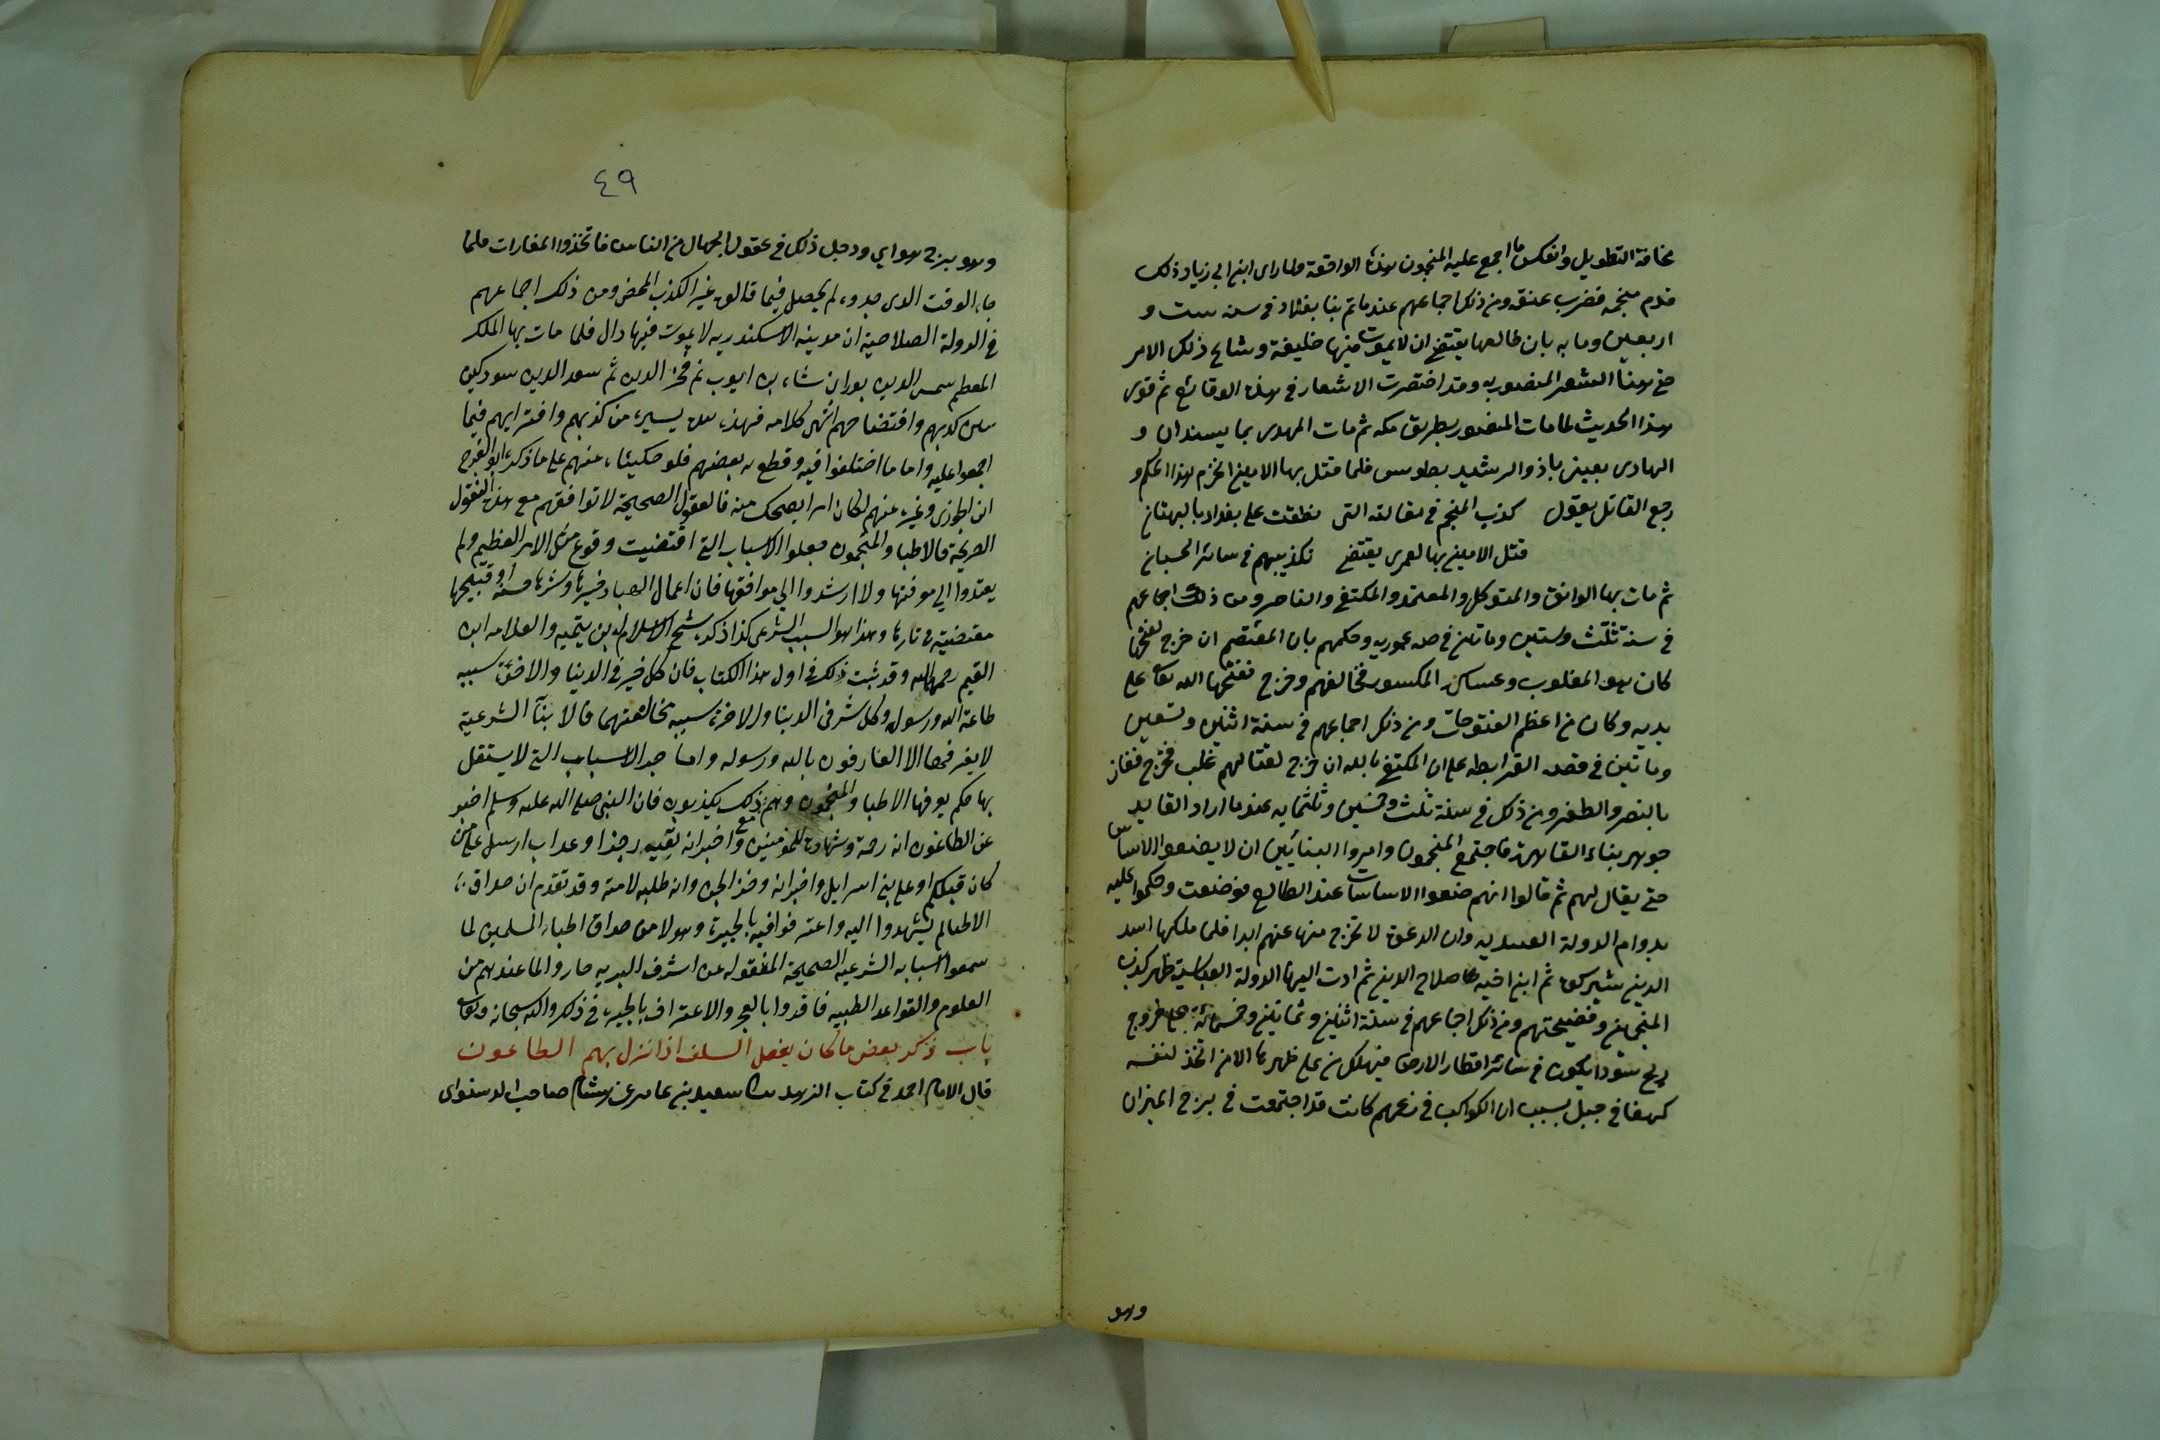 مخافة التطويل وانعكس ما اجمع عليه المنجمون هذه الواقعة ولما راى ابن ابي زياد ذلك
قدم منجمه فضرب عنقه ومن ذلك اجماعهم عندما تم بنا بغداد في سنه ست و
اربعين ومايه بان طالعها يقتضي ان لا يموت فيها خليفة وشاع ذلك الامر
حتى هنا الشعر المنصوريه وقد اختصرت الاشعار في هذه الوقائع ثم قوى
هذا الحديث لما مات المنصور بطريق مكه ثم مات المهدى بما يسندان و
الهادى بعيسى باذ والرشيد بطوس فلما قتل بها الامين انخزم هذا الحكم و
رجع القائل يقول كذب المنجم في مقالته التي نطقت على بغداد بالبهتان
قتل الامين بها لعمرى يقتضي تكذيبهم في سائر الحسبان
ثم مات بها الواثق والمتوكل والمعتمد والمكتفي والناصر ومن ذلك اجماعهم
في سنة ثلث وستين وماتين في عموريه وحكمهم بان المعتصم ان خرج لفتحها
كان هو المغلوب وعساكره المكسوره فخالفهم وخرج ففتحها الله تعالى على
يديه وكان من اعظم الفتوحات ومن ذلك اجماعهم في سنة اثنين وتسعين
وماتين في قصه القرابطه على ان المكتفي بالله ان خرج لقتالهم غلب فخرج ففاز
بالنصر والظفر ومن ذلك في سنة ثلث وخمسين وثلثمايه عندما اراد القايد
جوهر بناء القاهرة فاجتمع المنجمون وامروا البنائين ان لا يضعوا الاساس
حتى يقال لهم ثم قالوا انهم ضعوا الاساسات عند الطالع فوضعت وحكموا عليه
بدوام الدولة العبيديه وان الدعوة لا تخرج منها عنهم ابدا فلما ملكها اسد
الدين شيركوه ثم ابن اخيه صلاح الدين ثم ادت اليها الدولة العباسية ظهر كذب
المنجمين وفضيحتهم ومن ذلك اجماعهم في سنة اثنين وثمانين وخمسمائة على خروج
ريح سودا يكون في سائر اقطار الارض فيهلك من على ظهرها الا من اتخذ لنفسه
كهفا في جبل بسبب ان الكواكب في زعمهم كانت قد اجتمعت في برج الميزان
وهو
٤٩
وهو برج هوايي ودخل ذلك في عقول الجهال من الناس فاتخذوا المغارات فلما
جاء الوقت الذى حدوه لم يحصل فيما قالوه غير الكذب المحض ومن ذلك اجماعهم
في الدولة الصلاحية ان مدينة الاسكندريه لا يموت فيها وال فلما مات بها الملك
المعظم شمس الدين توران شاه بن ايوب ثم فخر الدين ثم سعد الدين سودكين
بان كذبهم وافتضاحهم انتهى كلامه فهذه يسيرة من كذبهم وافترايهم فيما
اجمعوا عليه واما ما اختلفوا فيه وقطع به بعضهم فلو حكينا عنهم على ما ذكره ابو الفرج
ابن الجوزى وغيره عنهم لكان امرا يضحك منه فالعقول الصحيحة لا توافقهم مع هذه النقول
الصريحة فالاطبا والمنجمون جعلوا الاسباب التي اقتضيت وقوع مثل الامر العظيم ولم
يهتدوا الى معرفتها ولا ارشدوا الى موافقها فان اعمال العباد خيرها وشرها حسنها وقبيحها
مقتضية وهذا هو السبب الشرعى كذا ذكره شيخ الاسلام ابن تيميه والعلامه ابن
القيم رحمهما الله وقد ثبت ذلك في اول هذا الكتاب فان كل خير في الدنيا والاخرة سببه
طاعة الله ورسوله وكل شر في الدنيا والاخرة سببه مخالفتهما فالاسباب الشرعية
لا يعرفها الا العارفون بالله ورسوله واما الاسباب التي لا يستقل
بها حكم يعرفها الاطبا والمنجمون وهم بذلك يكذبون فان النبي صلى الله عليه وسلم اخبر
عن الطاعون انه رحمة وشهادة للمؤمنين واخبر انه بقيه رجز او عذاب ارسل على من
كان قبلكم او على بني اسرايل واخبر انه وخز الجن وانه طلبه لامته وقد تقدم ان حذاق
الاطبا لم يهتدوا اليه واعترفوا فيه بالحيرة وهولا من حذاق اطباء المسلمين لما
سمعوا الاسباب الشرعيه الصحيحة المنقوله عن اشرف البريه حاروا لما عندهم من
العلوم والقواعد الطبيه فاقروا بالعجز والاعتراف بالحيرة في ذلك والله سبحانه وتعالى
باب ذكر بعض ما كان يفعل السلف اذا نزل بهم الطاعون
قال الامام احمد في كتاب الزهد سعيد بن عامر عن هشام صاحب الدستواى